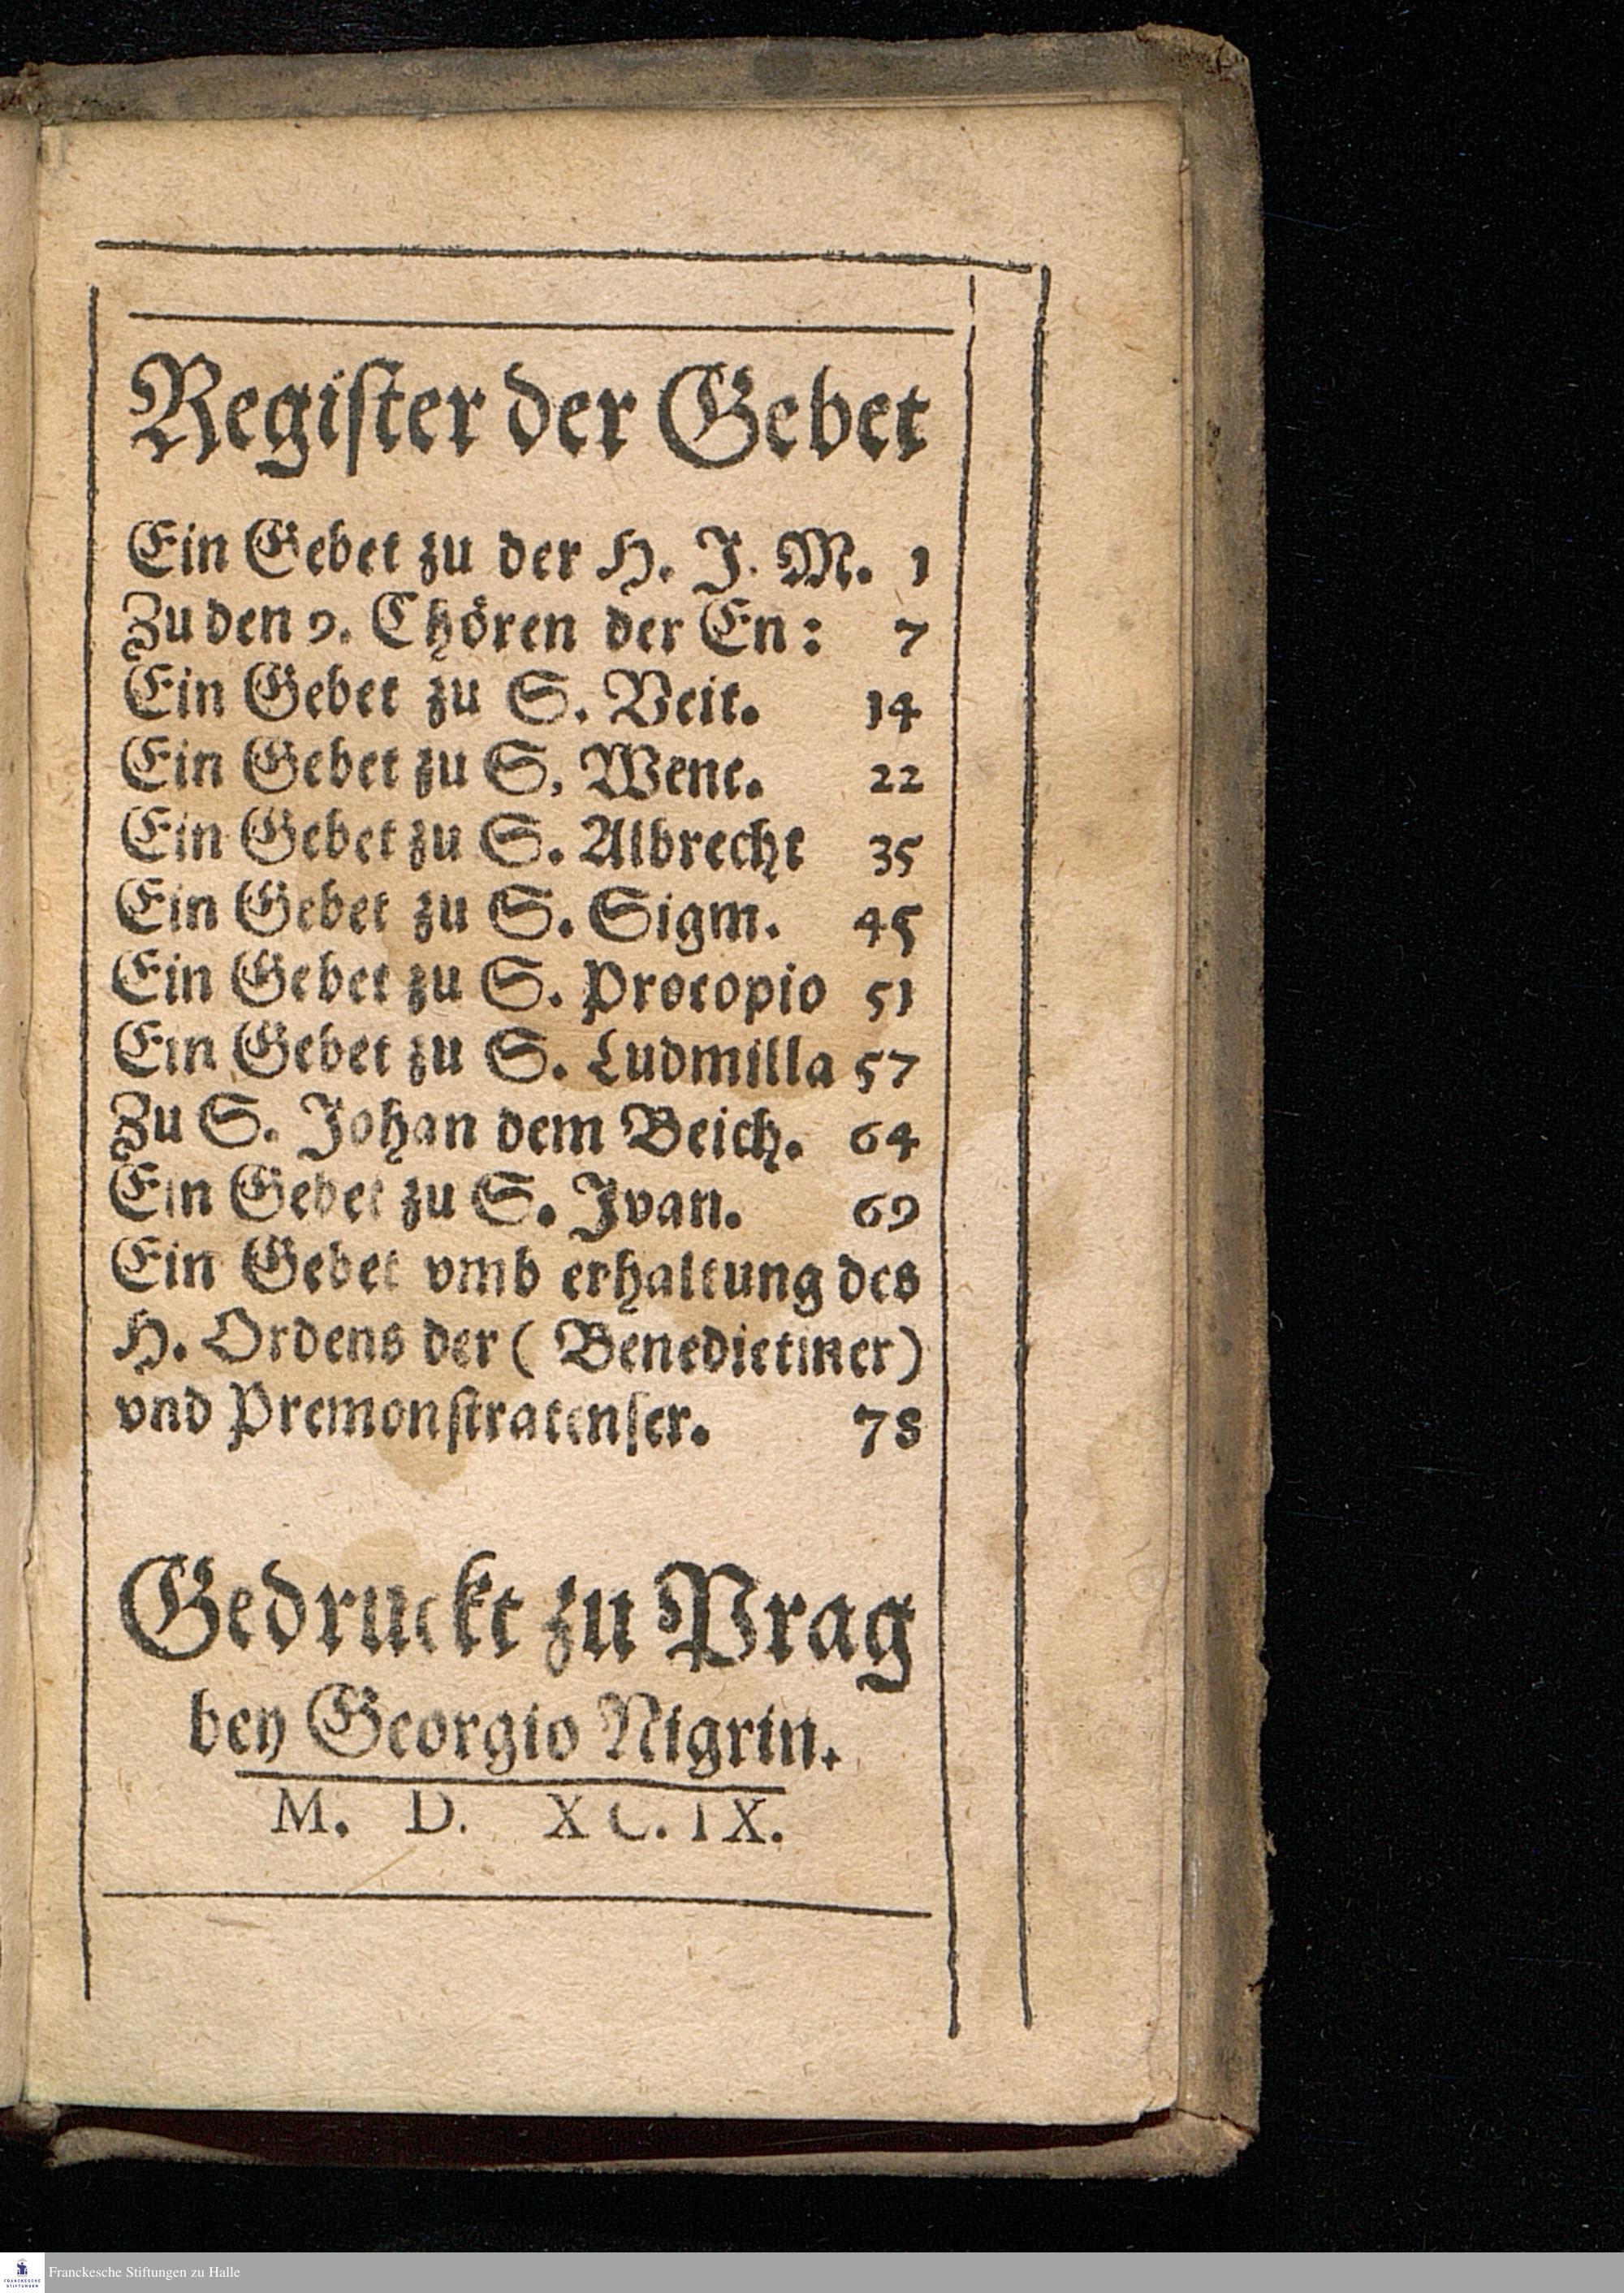 Regiſter der Gebet
Ein Gebet zu der H. J. M. 1
Zu den 9. Chören der En: 7
Ein Gebet zu S. Veit. 14
Ein Gebet zu S. Wenc. 22
Ein Gebet zu S. Albrecht 35
Ein Gebet zu S. Sigm. 45
Ein Gebet zu S. Procopio 51
Ein Gebet zu S. Ludmilla 57
Zu S. Johan dem Beich. 64
Ein Gebet zu S. Jvan. 69
Ein Gebet vmb erhaltung des
H. Ordens der ( Benedictiner)
vnd Premonſtratenſer. 78
Gedruckt zu Prag
bey Georgio Nigrin.
M. D. XC. IX.
Franckesche Stiftungen zu Halle
FRANCKESCHE
STIFTUNGEN